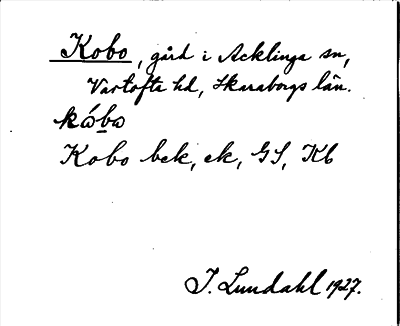 Kobo, gård i Acklinga sn,
Vartofta hd, Skaraborgs län.
kǻbω
Kobo bek, ek, GS, Kb
I. Lundahl 1927.